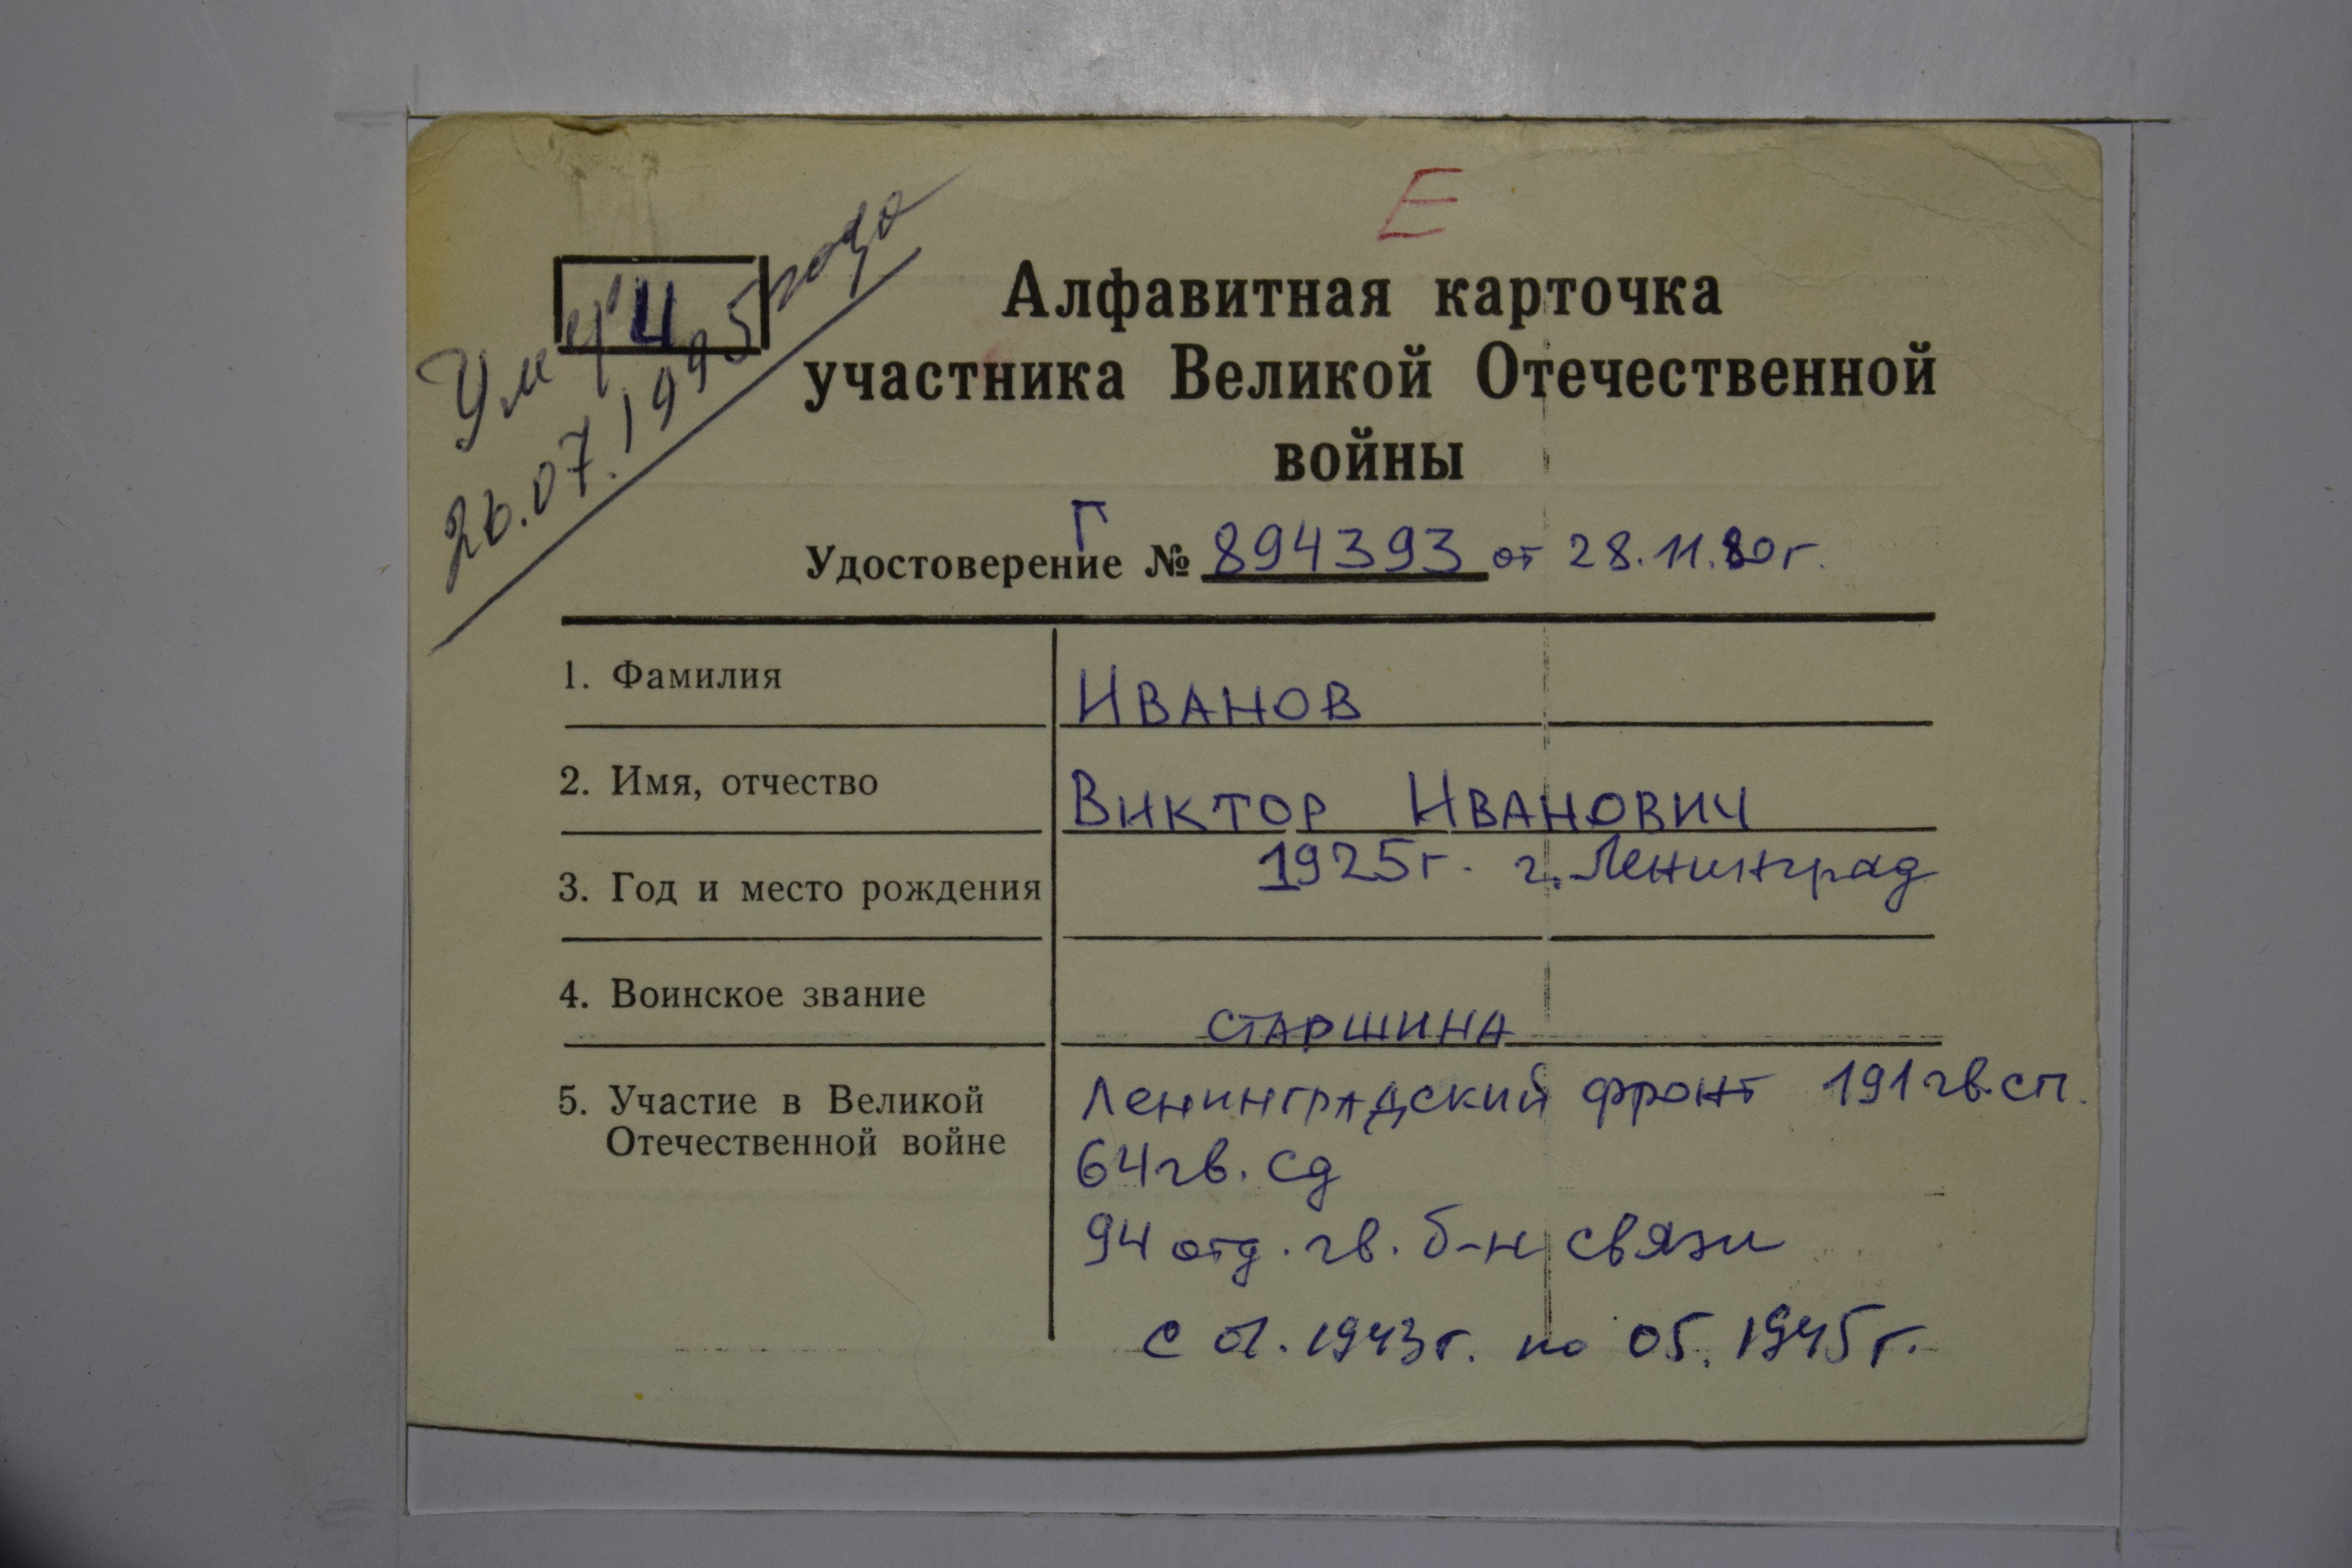 Е
Умер
И
26.07.1995 года
Алфавитная карточка
участника Великой Отечественной
войны
Удостоверение Г № 894393 от 28.11.80г.
1. Фамилия ИВАНОВ
2. Имя, отчество ВИКТОР ИВАНОВИЧ
3. Год и место рождения 1925г. г. Ленинград
4. Воинское звание СТАРШИНА
5. Участие в Великой Ленинградский фронт 191 гв.сп.
Отечественной войне 64 гв. сд
94 отд. гв. б-н связи
с 01.1943г. по 05.1945г.